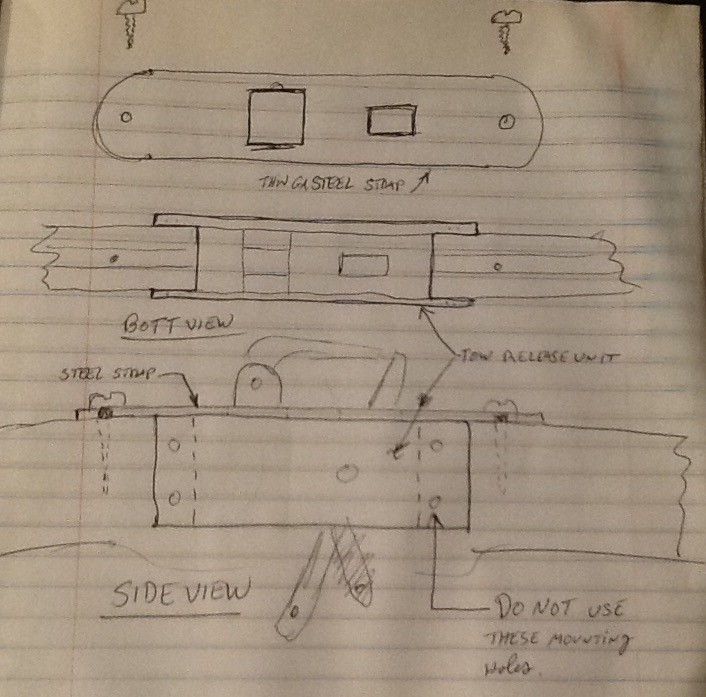 THIN GA STEEL STRAP
BOTT VIEW
TOW RELEASE UNIT
STEEL STRAP
SIDE VIEW
DO NOT USE
THESE MOUNTING
HOLES.